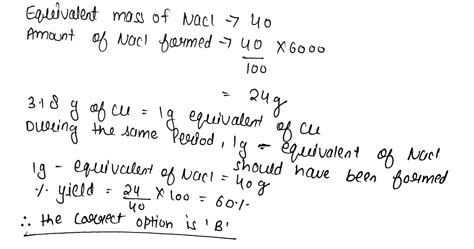 Equivalent mass of Nacl → 40
Amount of Nacl formed → 40/100 × 6000
= 24g
31.8 g of cu = 1g equivalent of cu
During the same period, 1g - equivalent of Nacl should have been formed
1g - equivalent of Nacl = 40g
% yield = 24/40 × 100 = 60%
∴ the correct option is 'B'